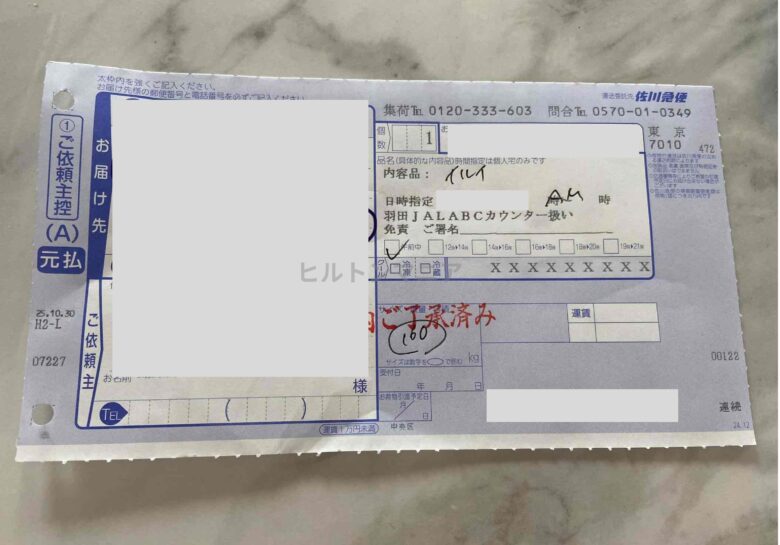 太枠内を強くご記入ください。
お届け先様の郵便番号と電話番号を必ずご記入ください。
運送委託先 佐川急便
集荷℡ 0120-333-603 問合℡ 0570-01-0349
①ご依頼主控
(A)
元払
お届け先
個数 1
東京
7010 472
品名(具体的な内容品)時間指定は個人宅のみです
内容品:
日時指定 AM 時
羽田JALABCカウンター扱い
免責 ご署名
午前中 12時〜14時 14時〜16時 16時〜18時 18時〜20時 19時〜21時
クール 冷凍 冷蔵
XXXXXXXXXX
ヒルト
ご了承済み
160
サイズは数字を○で囲む
kg
運賃
25.10.30
H2-L
07227
ご依頼主
00122
受付日
年 月 日
お荷物引渡予定日
月 日
様
TEL ( )
運賃千万円未満
中央区
連続
24.12